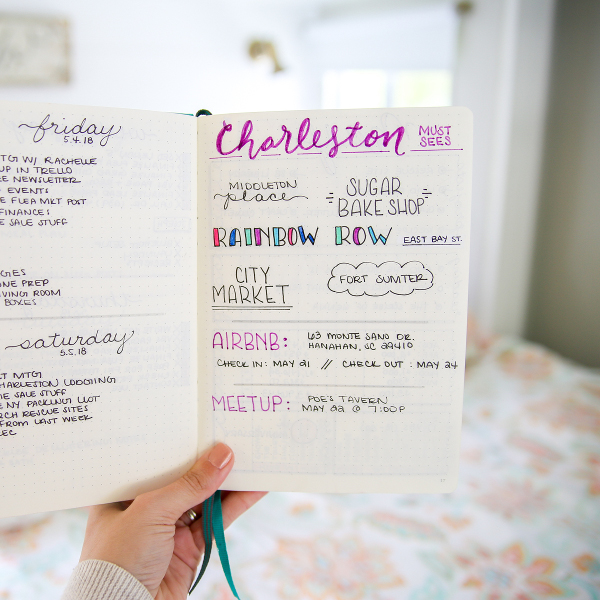 friday
5.4.18
MTG W/ RACHELLE
UP IN TRELLO
NEWSLETTER
EVENTS
FLEA MKT POST
FINANCES
SALE STUFF
PREP
ROOM
BOXES
saturday
5.5.18
MTG
CHARLESTON LODGING
SALE STUFF
NY PACKING LIST
RESCUE SITES
FROM LAST WEEK
Charleston MUST SEES
MIDDLETON place
SUGAR BAKE SHOP
RAINBOW ROW EAST BAY ST.
CITY MARKET
FORT SUMTER
AIRBNB: 63 MONTE SANO DR.
HANAHAN, SC 29410
CHECK IN: MAY 21 // CHECK OUT: MAY 24
MEETUP: POE'S TAVERN
MAY 22 @ 7:00P